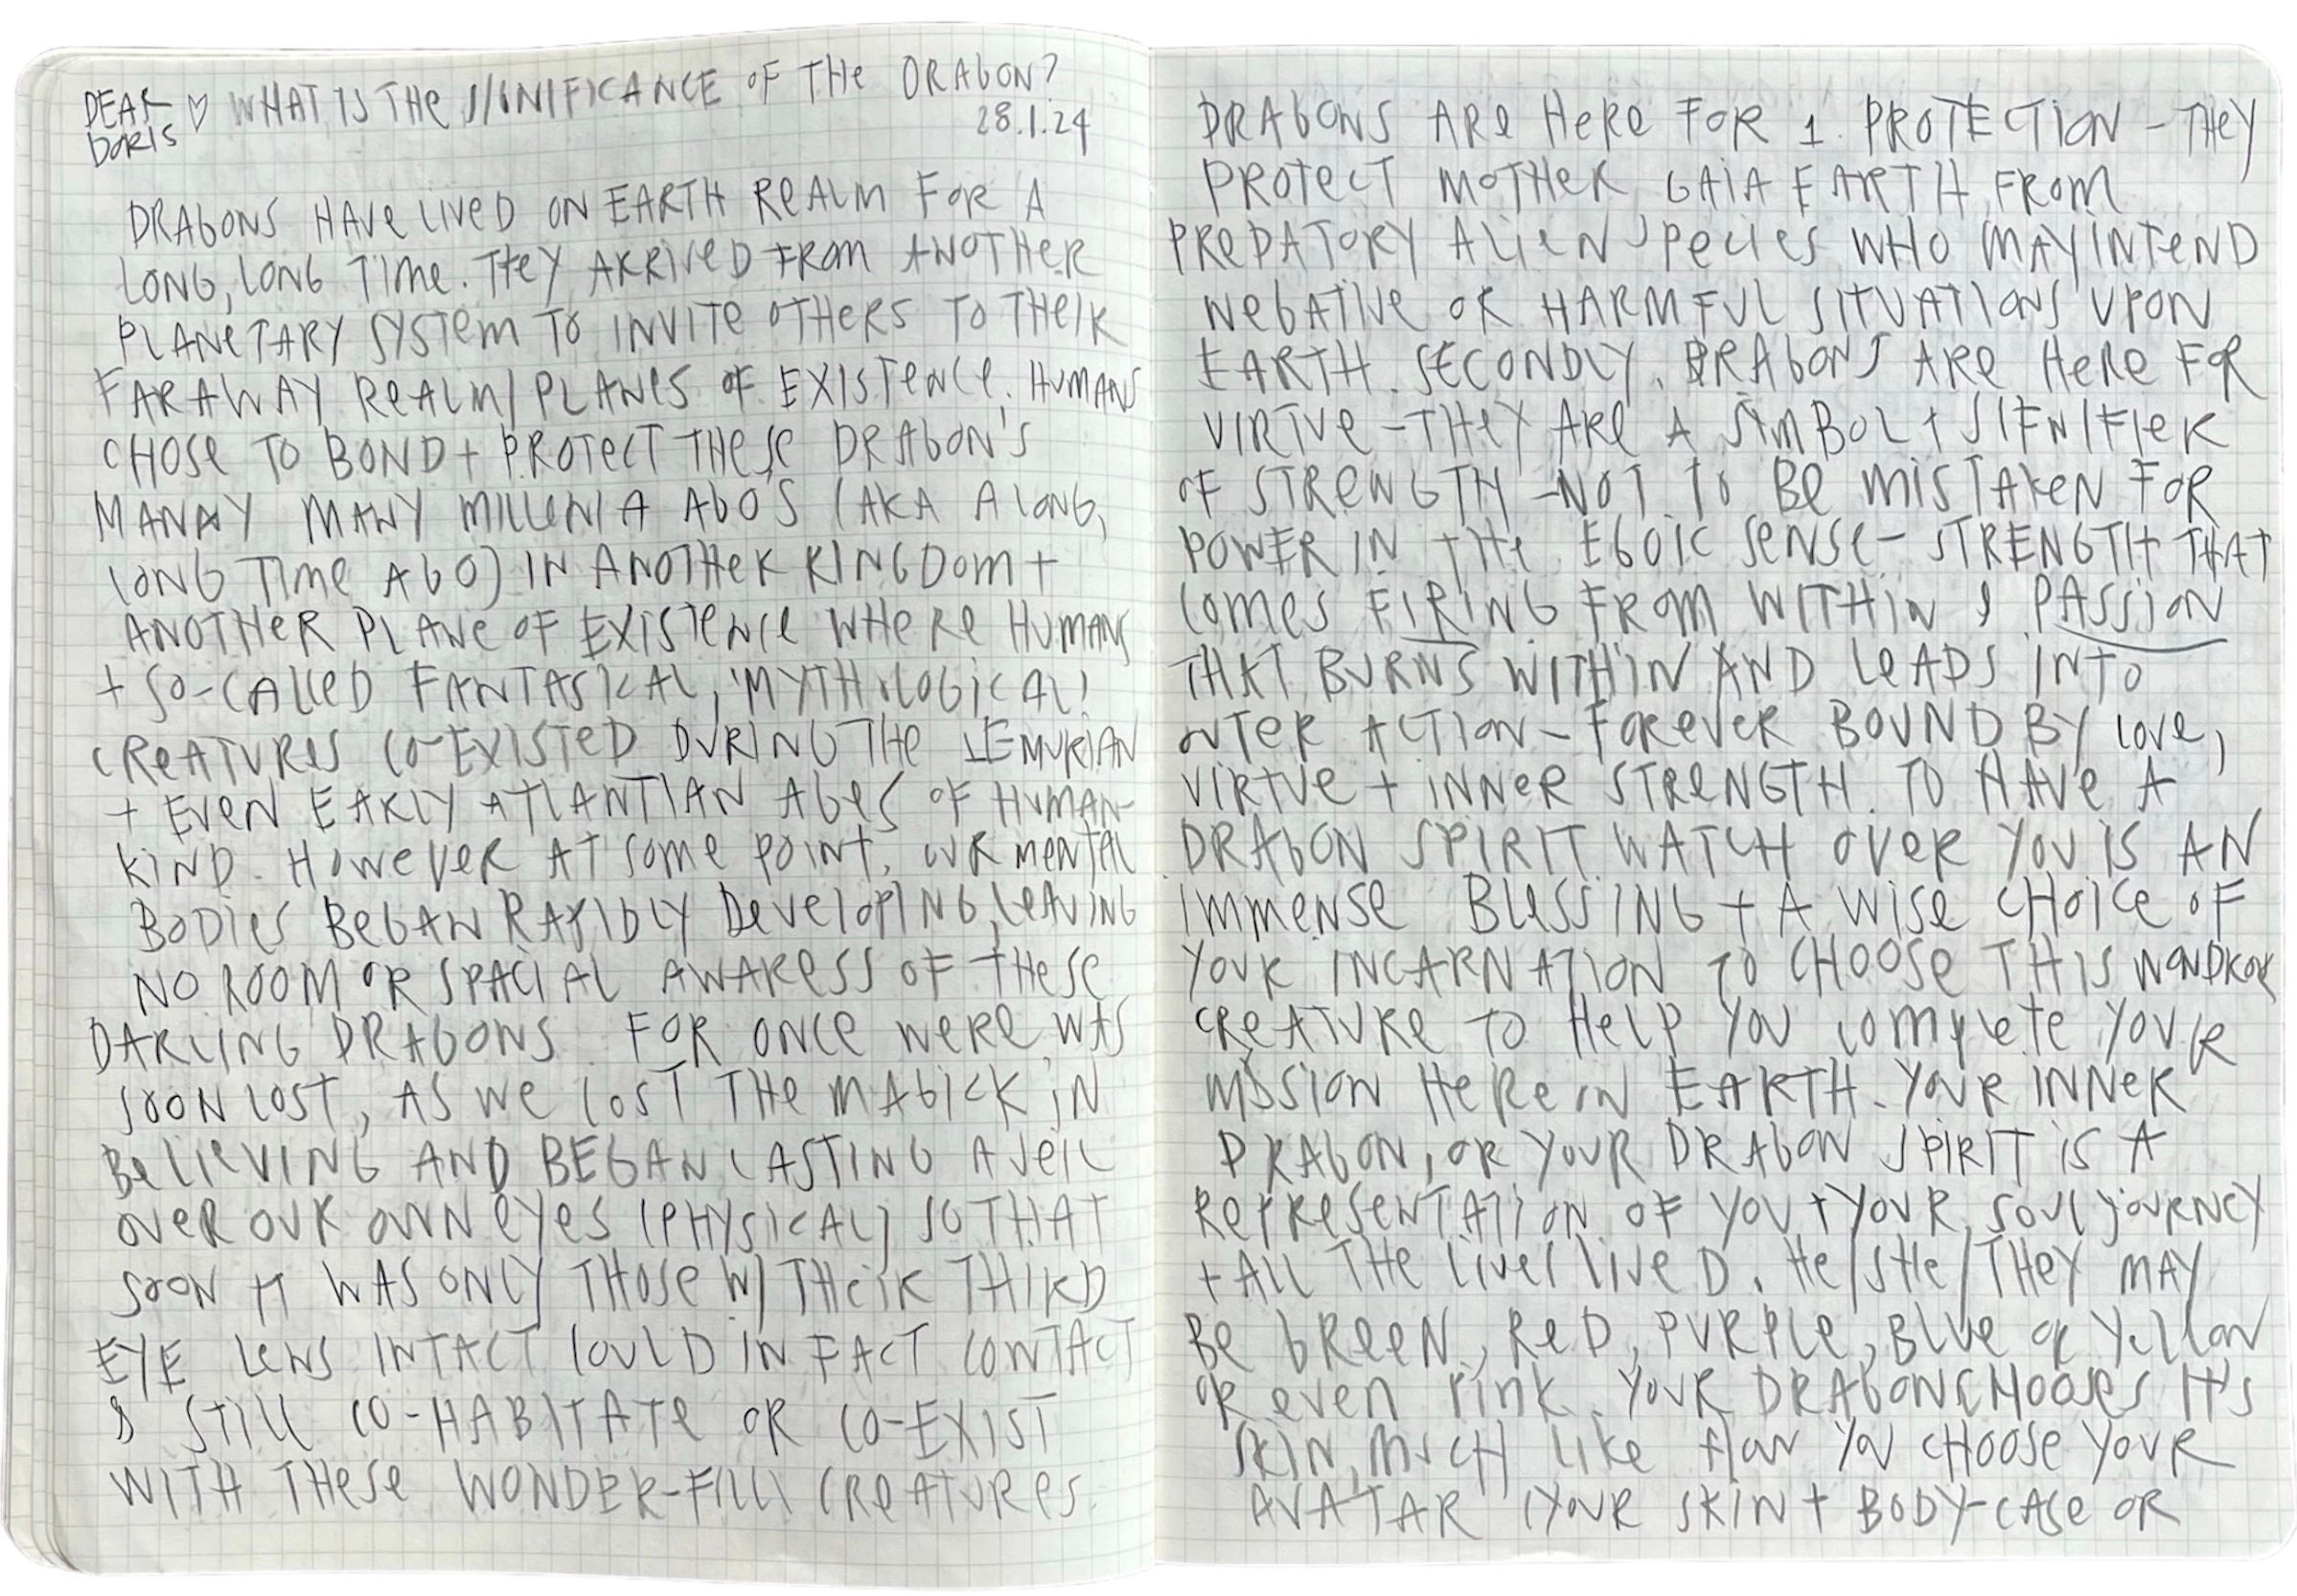 DEAR DORIS ♡ WHAT IS THE SIGNIFICANCE OF THE DRAGON?
28.1.24
DRAGONS HAVE LIVED ON EARTH REALM FOR A
LONG, LONG TIME. THEY ARRIVED FROM ANOTHER
PLANETARY SYSTEM TO INVITE OTHERS TO THEIR
FARAWAY REALM/PLANES OF EXISTENCE. HUMANS
CHOSE TO BOND + PROTECT THESE DRAGON'S
MANAY MANY MILLENIA AGO'S (AKA A LONG,
LONG TIME AGO) IN ANOTHER KINGDOM +
ANOTHER PLANE OF EXISTENCE WHERE HUMANS
+ SO-CALLED FANTASICAL, 'MYTHOLOGICAL'
CREATURES CO-EXISTED DURING THE LEMURIAN
+ EVEN EARLY ATLANTIAN AGES OF HUMAN-
KIND. HOWEVER AT SOME POINT, OUR MENTAL
BODIES BEGAN RAPIDLY DEVELOPING, LEAVING
NO ROOM OR SPACIAL AWARESS OF THESE
DARLING DRAGONS. FOR ONCE WERE, WAS
SOON LOST, AS WE LOST THE MAGICK IN
BELIEVING AND BEGAN CASTING A VEIL
OVER OUR OWN EYES (PHYSICAL) SO THAT
SOON IT WAS ONLY THOSE W/ THEIR THIRD
EYE LENS INTACT COULD IN FACT CONTACT
& STILL CO-HABITATE OR CO-EXIST
WITH THESE WONDER-FILLL CREATURES.
DRAGONS ARE HERE FOR 1. PROTECTION - THEY
PROTECT MOTHER GAIA EARTH FROM
PREDATORY ALIEN SPECIES WHO MAY INTEND
NEGATIVE OR HARMFUL SITUATIONS UPON
EARTH. SECONDLY, DRAGONS ARE HERE FOR
VIRTUE - THEY ARE A SIMBOL + SIFNIFIER
OF STRENGTH - NOT TO BE MISTAKEN FOR
POWER IN THE EGOIC SENSE - STRENGTH THAT
COMES FIRING FROM WITHIN & PASSION
THAT BURNS WITHIN AND LEADS INTO
OUTER ACTION - FOREVER BOUND BY LOVE,
VIRTUE + INNER STRENGTH. TO HAVE A
DRAGON SPIRIT WATCH OVER YOU IS AN
IMMENSE BLESSING + A WISE CHOICE OF
YOUR INCARNATION TO CHOOSE THIS
CREATURE TO HELP YOU COMPLETE YOUR
MISSION HERE ON EARTH. YOUR INNER
DRAGON, OR YOUR DRAGON SPIRIT IS A
REPRESENTATION OF YOU + YOUR SOUL JOURNEY
+ ALL THE LIVES LIVED. HE/SHE/THEY MAY
BE GREEN, RED, PURPLE, BLUE OR YELLOW
OR EVEN PINK. YOUR DRAGON CHOOSES IT'S
SKIN, MUCH LIKE HOW YOU CHOOSE YOUR
AVATAR (YOUR SKIN + BODY-CASE OR